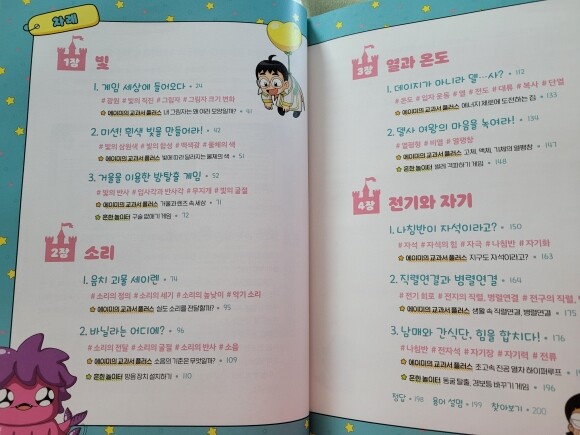 차례
1장 빛
1. 게임 세상에 들어오다 • 24
# 광원 # 빛의 직진 # 그림자 # 그림자 크기 변화
에이미의 교과서 플러스 내 그림자는 왜 이런 모양일까? • 41
2. 미션! 흰색 빛을 만들어라! • 42
# 빛의 삼원색 # 빛의 합성 # 백색광 # 물체의 색
에이미의 교과서 플러스 빛에 따라 달라지는 물체의 색 • 51
3. 거울을 이용한 방탈출 게임 • 52
# 빛의 반사 # 입사각과 반사각 # 무지개 # 빛의 굴절
에이미의 교과서 플러스 거울과 렌즈 속 세상 • 71
흔한 놀이터 구슬 없애기 게임 • 72
2장 소리
1. 음치 괴물 세이렌 • 74
# 소리의 정의 # 소리의 세기 # 소리의 높낮이 # 악기 소리
에이미의 교과서 플러스 실도 소리를 전달할까? • 95
2. 바닐라는 어디에? • 96
# 소리의 전달 # 소리의 굴절 # 소리의 반사 # 소음
에이미의 교과서 플러스 소음의 기준은 무엇일까? • 109
흔한 놀이터 방음 장치 설치하기 • 110
3장 열과 온도
1. 데이지가 아니라 델…사? • 112
# 온도 # 입자 운동 # 열 # 전도 # 대류 # 복사 # 단열
에이미의 교과서 플러스 에너지 제로에 도전하는 집 • 133
2. 델사 여왕의 마음을 녹여라! • 134
# 열평형 # 비열 # 열팽창
에이미의 교과서 플러스 고체, 액체, 기체의 열팽창 • 147
흔한 놀이터 빌러 격파하기 게임 • 148
4장 전기와 자기
1. 나침반이 자석이라고? • 150
# 자석 # 자석의 힘 # 자극 # 나침반 # 자기화
에이미의 교과서 플러스 지구도 자석이라고? • 163
2. 직렬연결과 병렬연결 • 164
# 전기 회로 # 전지의 직렬, 병렬연결 # 전구의 직렬,
에이미의 교과서 플러스 생활 속 직렬연결, 병렬연결 • 175
3. 남매와 간식단, 힘을 합치다! • 176
# 나침반 # 전자석 # 자기장 # 자기력 # 전류
에이미의 교과서 플러스 초고속 진공 열차 하이퍼루프 •
흔한 놀이터 동굴 탈출, 경보등 바꾸기 게임 • 196
정답 • 198 용어 설명 • 199 찾아보기 • 200